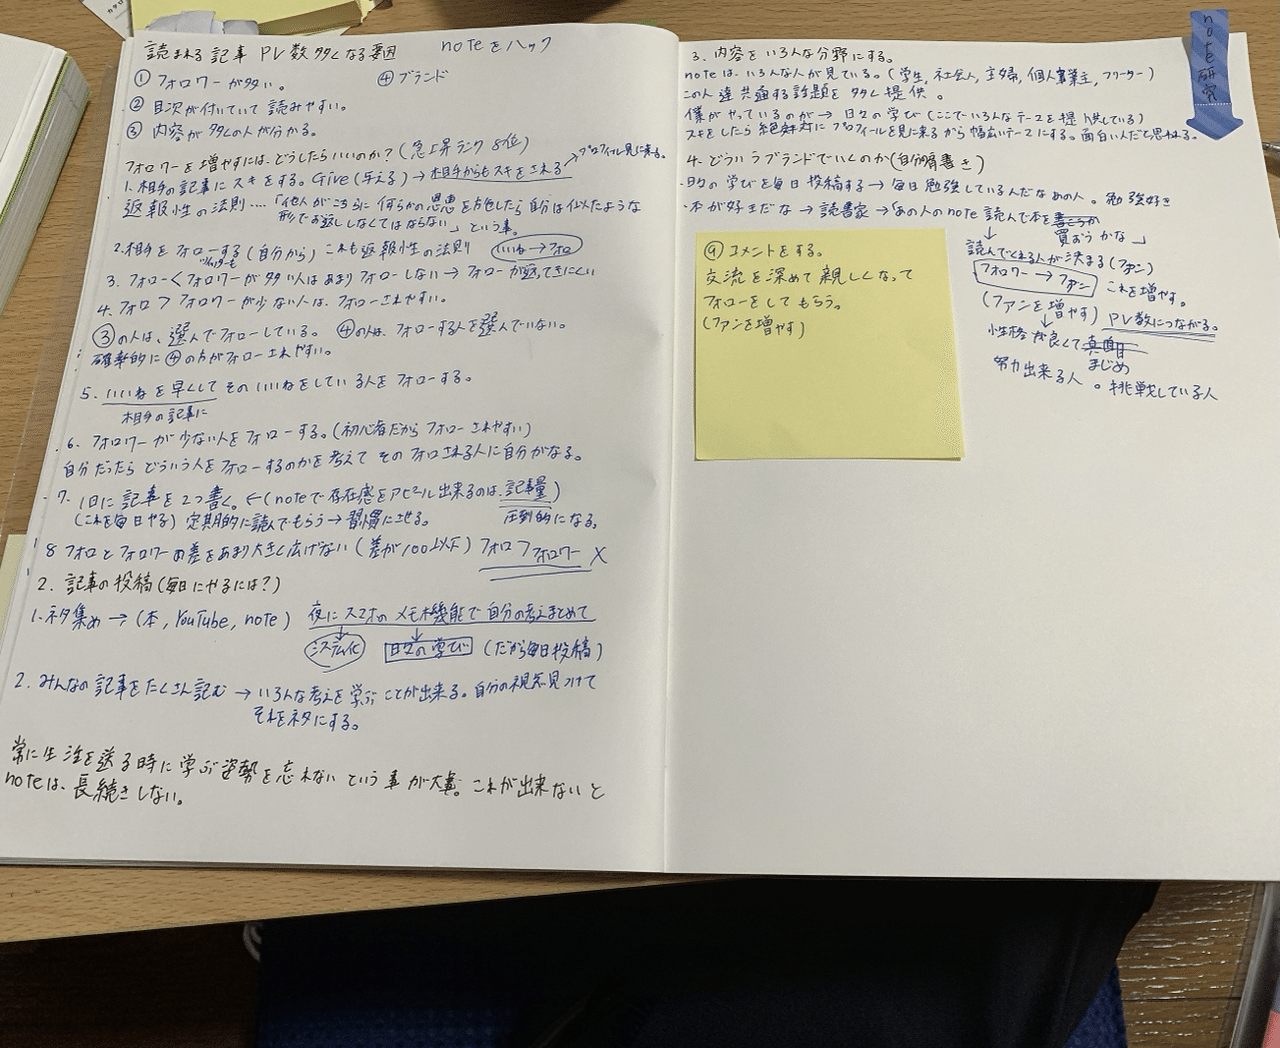 読まれる記事 PV数多くなる要因 noteをハック
① フォロワーが多い。 ④ブランド
② 目次が付いていて読みやすい。
③ 内容が多くの人が分かる。
フォロワーを増やすには、どうしたらいいのか?(急上昇ランク8位)
1. 相手の記事にスキをする。Give(与える)→相手からもスキをされる→プロフィール見に来る。
返報性の法則....「他人がこちらに何らかの恩恵を施したら自分は似たような
形でお返ししなくてはならない」という事。
2. 相手をフォローする(自分から)これも返報性の法則 いいね→フォロ
ツイッターも
3. フォロー<フォロワーが多い人はあまりフォローしない→フォローが返ってきにくい
4. フォロ>フォロワーが少ない人は、フォローされやすい。
③の人は、選んでフォローしている。④の人は、フォローする人を選んでいない。
確率的に④の方がフォローされやすい。
5. いいねを早くしてそのいいねをしている人をフォローする。
相手の記事に
6. フォロワーが少ない人をフォローする。(初心者だからフォローされやすい)
自分だったらどういう人をフォローするのかを考えてそのフォロされる人に自分がなる。
7. 1日に記事を2つ書く。←(noteで存在感をアピール出来るのは、記事量)
(これを毎日やる)定期的に読んでもらう→習慣にさせる。 圧倒的になる。
8 フォロとフォロワーの差をあまり大きく広げない(差が100以下)フォロ>フォロワー ×
2. 記事の投稿(毎日にやるには?)
1. ネタ集め→(本, YouTube, note) 夜にスマホのメモ機能で自分の考えまとめて
システム化 日々の学び (だから毎日投稿)
2. みんなの記事をたくさん読む→いろんな考えを学ぶことが出来る。自分の視点見つけて
それをネタにする。
常に生活を送る時に学ぶ姿勢を忘れないという事が大事。これが出来ないと
noteは、長続きしない。
note研究
3. 内容をいろんな分野にする。
noteは、いろんな人が見ている。(学生, 社会人, 主婦, 個人事業主, フリーター)
この人達共通する話題を多く提供。
僕がやっているのが→日々の学び(ここでいろんなテーマを提供している)
スキをしたら絶対にプロフィールを見に来るから幅広いテーマにする。面白い人だと思われる。
4. どういうブランドでいくのか(自分肩書き)
・日々の学びを毎日投稿する→毎日勉強しているんだなあの人。勉強好き
・本が好きだな→読書家→「あの人のnote読んで本を
買おうかな」
読んでくれる人が決まる(ファン)
フォロワー→ファン これを増やす。
(ファンを増やす) PV数につながる。
性格が良くて真面目
まじめ
努力出来る人。挑戦している人
⑨ コメントをする。
交流を深めて親しくなって
フォローをしてもらう。
(ファンを増やす)